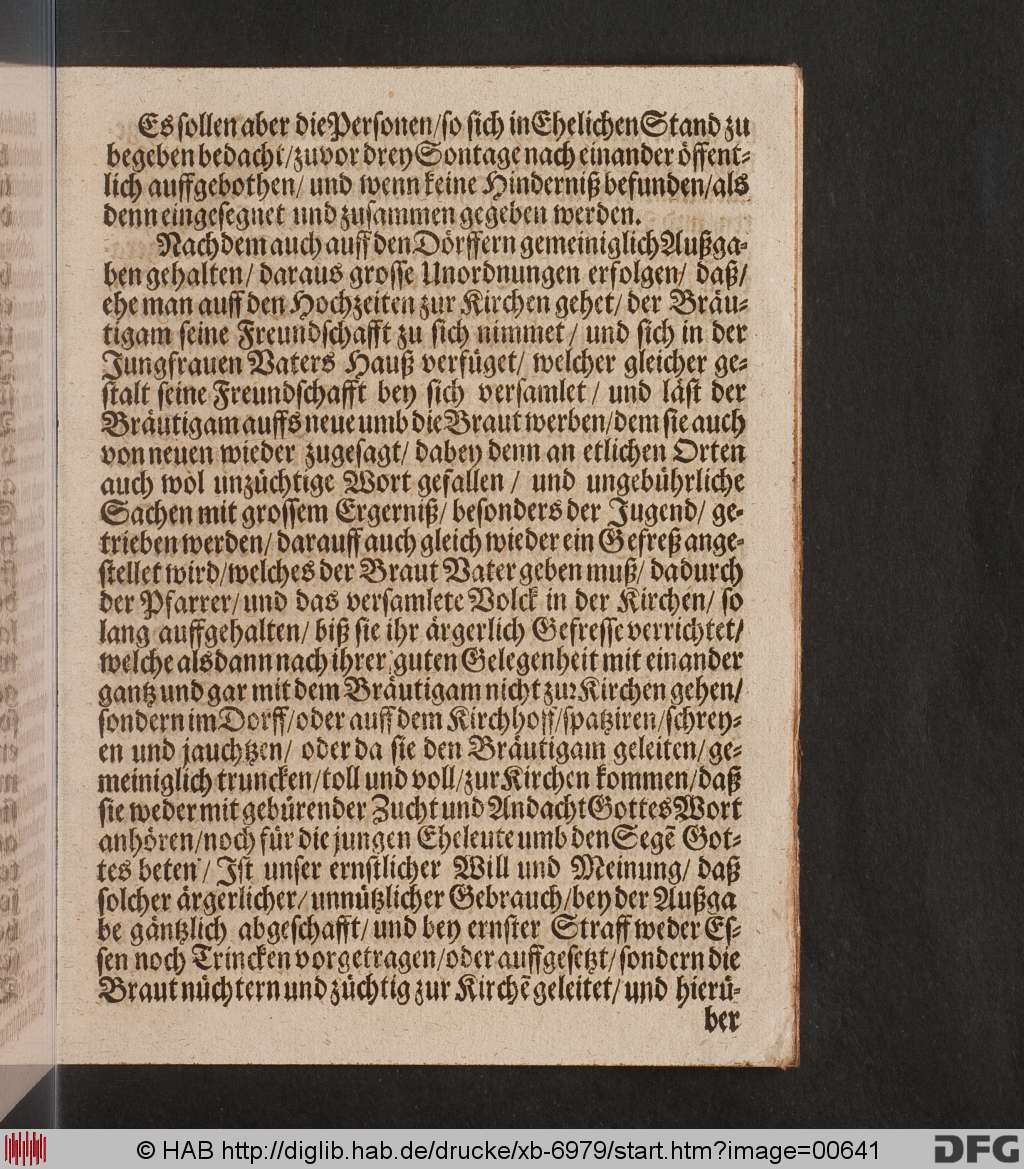 Es sollen aber die Personen/so sich in Ehelichen Stand zu
begeben bedacht/zuvor drey Sontage nach einander öffent-
lich auffgebothen/ und wenn keine Hinderniß befunden/als
denn eingesegnet und zusammen gegeben werden.
Nach dem auch auff den Dörffern gemeiniglich Außga-
ben gehalten/ daraus grosse Unordnungen erfolgen/ daß/
ehe man auff den Hochzeiten zur Kirchen gehet/ der Bräu-
tigam seine Freundschafft zu sich nimmet/ und sich in der
Jungfrauen Vaters Hauß verfüget/ welcher gleicher ge-
stalt seine Freundschafft bey sich versamlet/ und läst der
Bräutigam auffs neue umb die Braut werben/dem sie auch
von neuen wieder zugesagt/ dabey denn an etlichen Orten
auch wol unzüchtige Wort gefallen/ und ungebührliche
Sachen mit grossem Ergerniß/ besonders der Jugend/ ge-
trieben werden/ darauff auch gleich wieder ein Gefreß ange-
stellet wird/welches der Braut Vater geben muß/ dadurch
der Pfarrer/und das versamlete Volck in der Kirchen/ so
lang auffgehalten/ biß sie ihr ärgerlich Gefresse verrichtet/
welche alsdann nach ihrer guten Gelegenheit mit einander
gantz und gar mit dem Bräutigam nicht zur Kirchen gehen/
sondern im Dorff/oder auff dem Kirchhoff/spatziren/schrey-
en und jauchtzen/ oder da sie den Bräutigam geleiten/ge-
meiniglich truncken/toll und voll/zur Kirchen kommen/daß
sie weder mit gebürender Zucht und Andacht Gottes Wort
anhören/noch für die jungen Eheleute umb den Segē Got-
tes beten/ Ist unser ernstlicher Will und Meinung/ daß
solcher ärgerlicher/unnützlicher Gebrauch/bey der Außga
be gäntzlich abgeschafft/ und bey ernster Straff weder Es-
sen noch Trincken vorgetragen/oder auffgesetzt/sondern die
Braut nüchtern und züchtig zur Kirchē geleitet/und hierü-
ber
© HAB http://diglib.hab.de/drucke/xb-6979/start.htm?image=00641
DFG